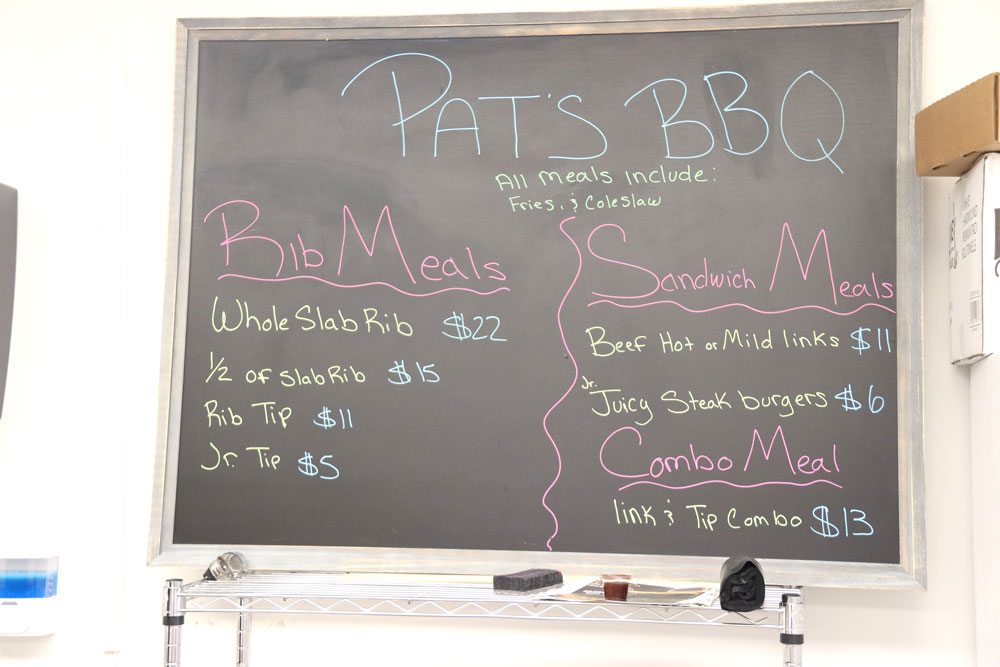 PAT'S BBQ
All meals include:
Fries, & Coleslaw
Rib Meals
Whole Slab Rib $22
1/2 of Slab Rib $15
Rib Tip $11
Jr. Tip $5
Sandwich Meals
Beef Hot or Mild links $11
Jr. Juicy Steak burgers $6
Combo Meal
link & Tip Combo $13